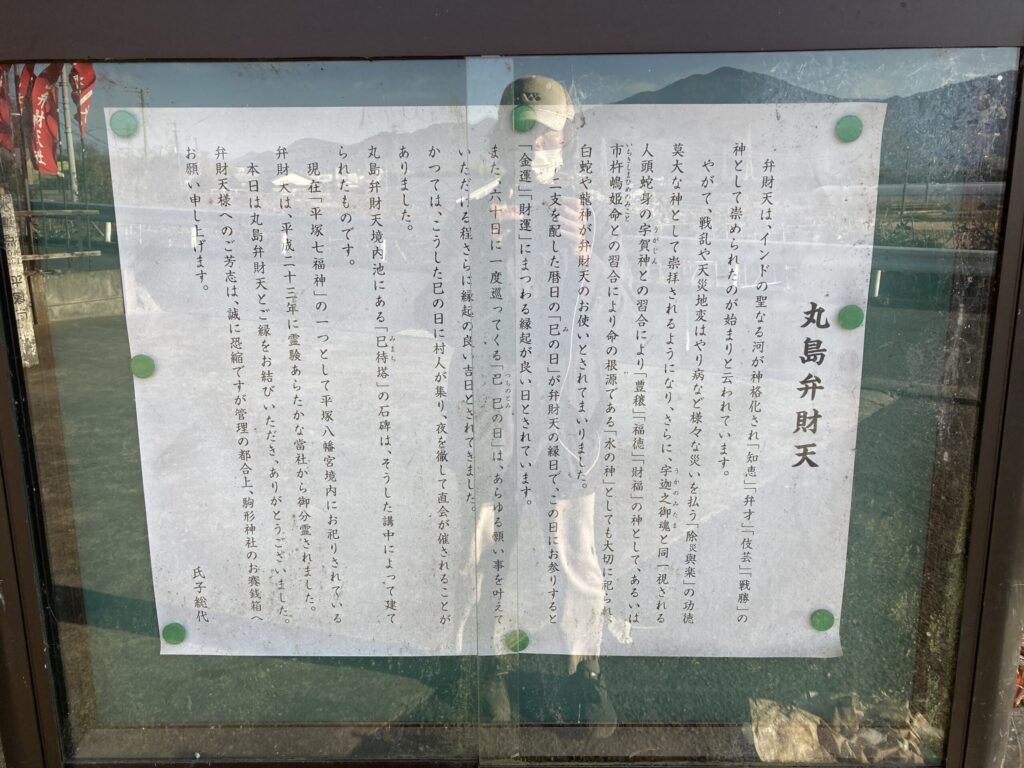 丸島弁財天
弁財天は、インドの聖なる河が神格化され「知恵」「弁才」「伎芸」「戦勝」の
神として崇められたのが始まりと云われています。
やがて、戦乱や天災地変はやり病など様々な災いを払う「除災與楽」の功徳
莫大な神として崇拝されるようになり、さらに、宇迦之御魂と同一視される
うかのみたま
人頭蛇身の宇賀神との習合により「豊穣」「福徳」「財福」の神として、あるいは
うがじん
市杵嶋姫命との習合により命の根源である「水の神」としても大切に祀られ、
いちきしまひめのみこと
白蛇や龍神が弁財天のお使いとされてまいりました。
二支を配した暦日の「巳の日」が弁財天の縁日で、この日にお参りすると
み
「金運」「財運」にまつわる縁起が良い日とされています。
また、六十日に一度巡ってくる「己巳の日」は、あらゆる願い事を叶えて
つちのとみ
いただける程さらに縁起の良い吉日とされてきました。
かつては、こうした巳の日に村人が集り、夜を徹して直会が催されることが
ありました。
丸島弁財天境内池にある「巳待塔」の石碑は、そうした講中によって建て
みまち
られたものです。
現在「平塚七福神」の一つとして平塚八幡宮境内にお祀りされている
弁財天は、平成二十三年に霊験あらたかな當社から御分霊されました。
本日は丸島弁財天とご縁をお結びいただき、ありがとうございました。
弁財天様へのご芳志は、誠に恐縮ですが管理の都合上、駒形神社のお賽銭箱へ
お願い申し上げます。
氏子総代
弁財天社